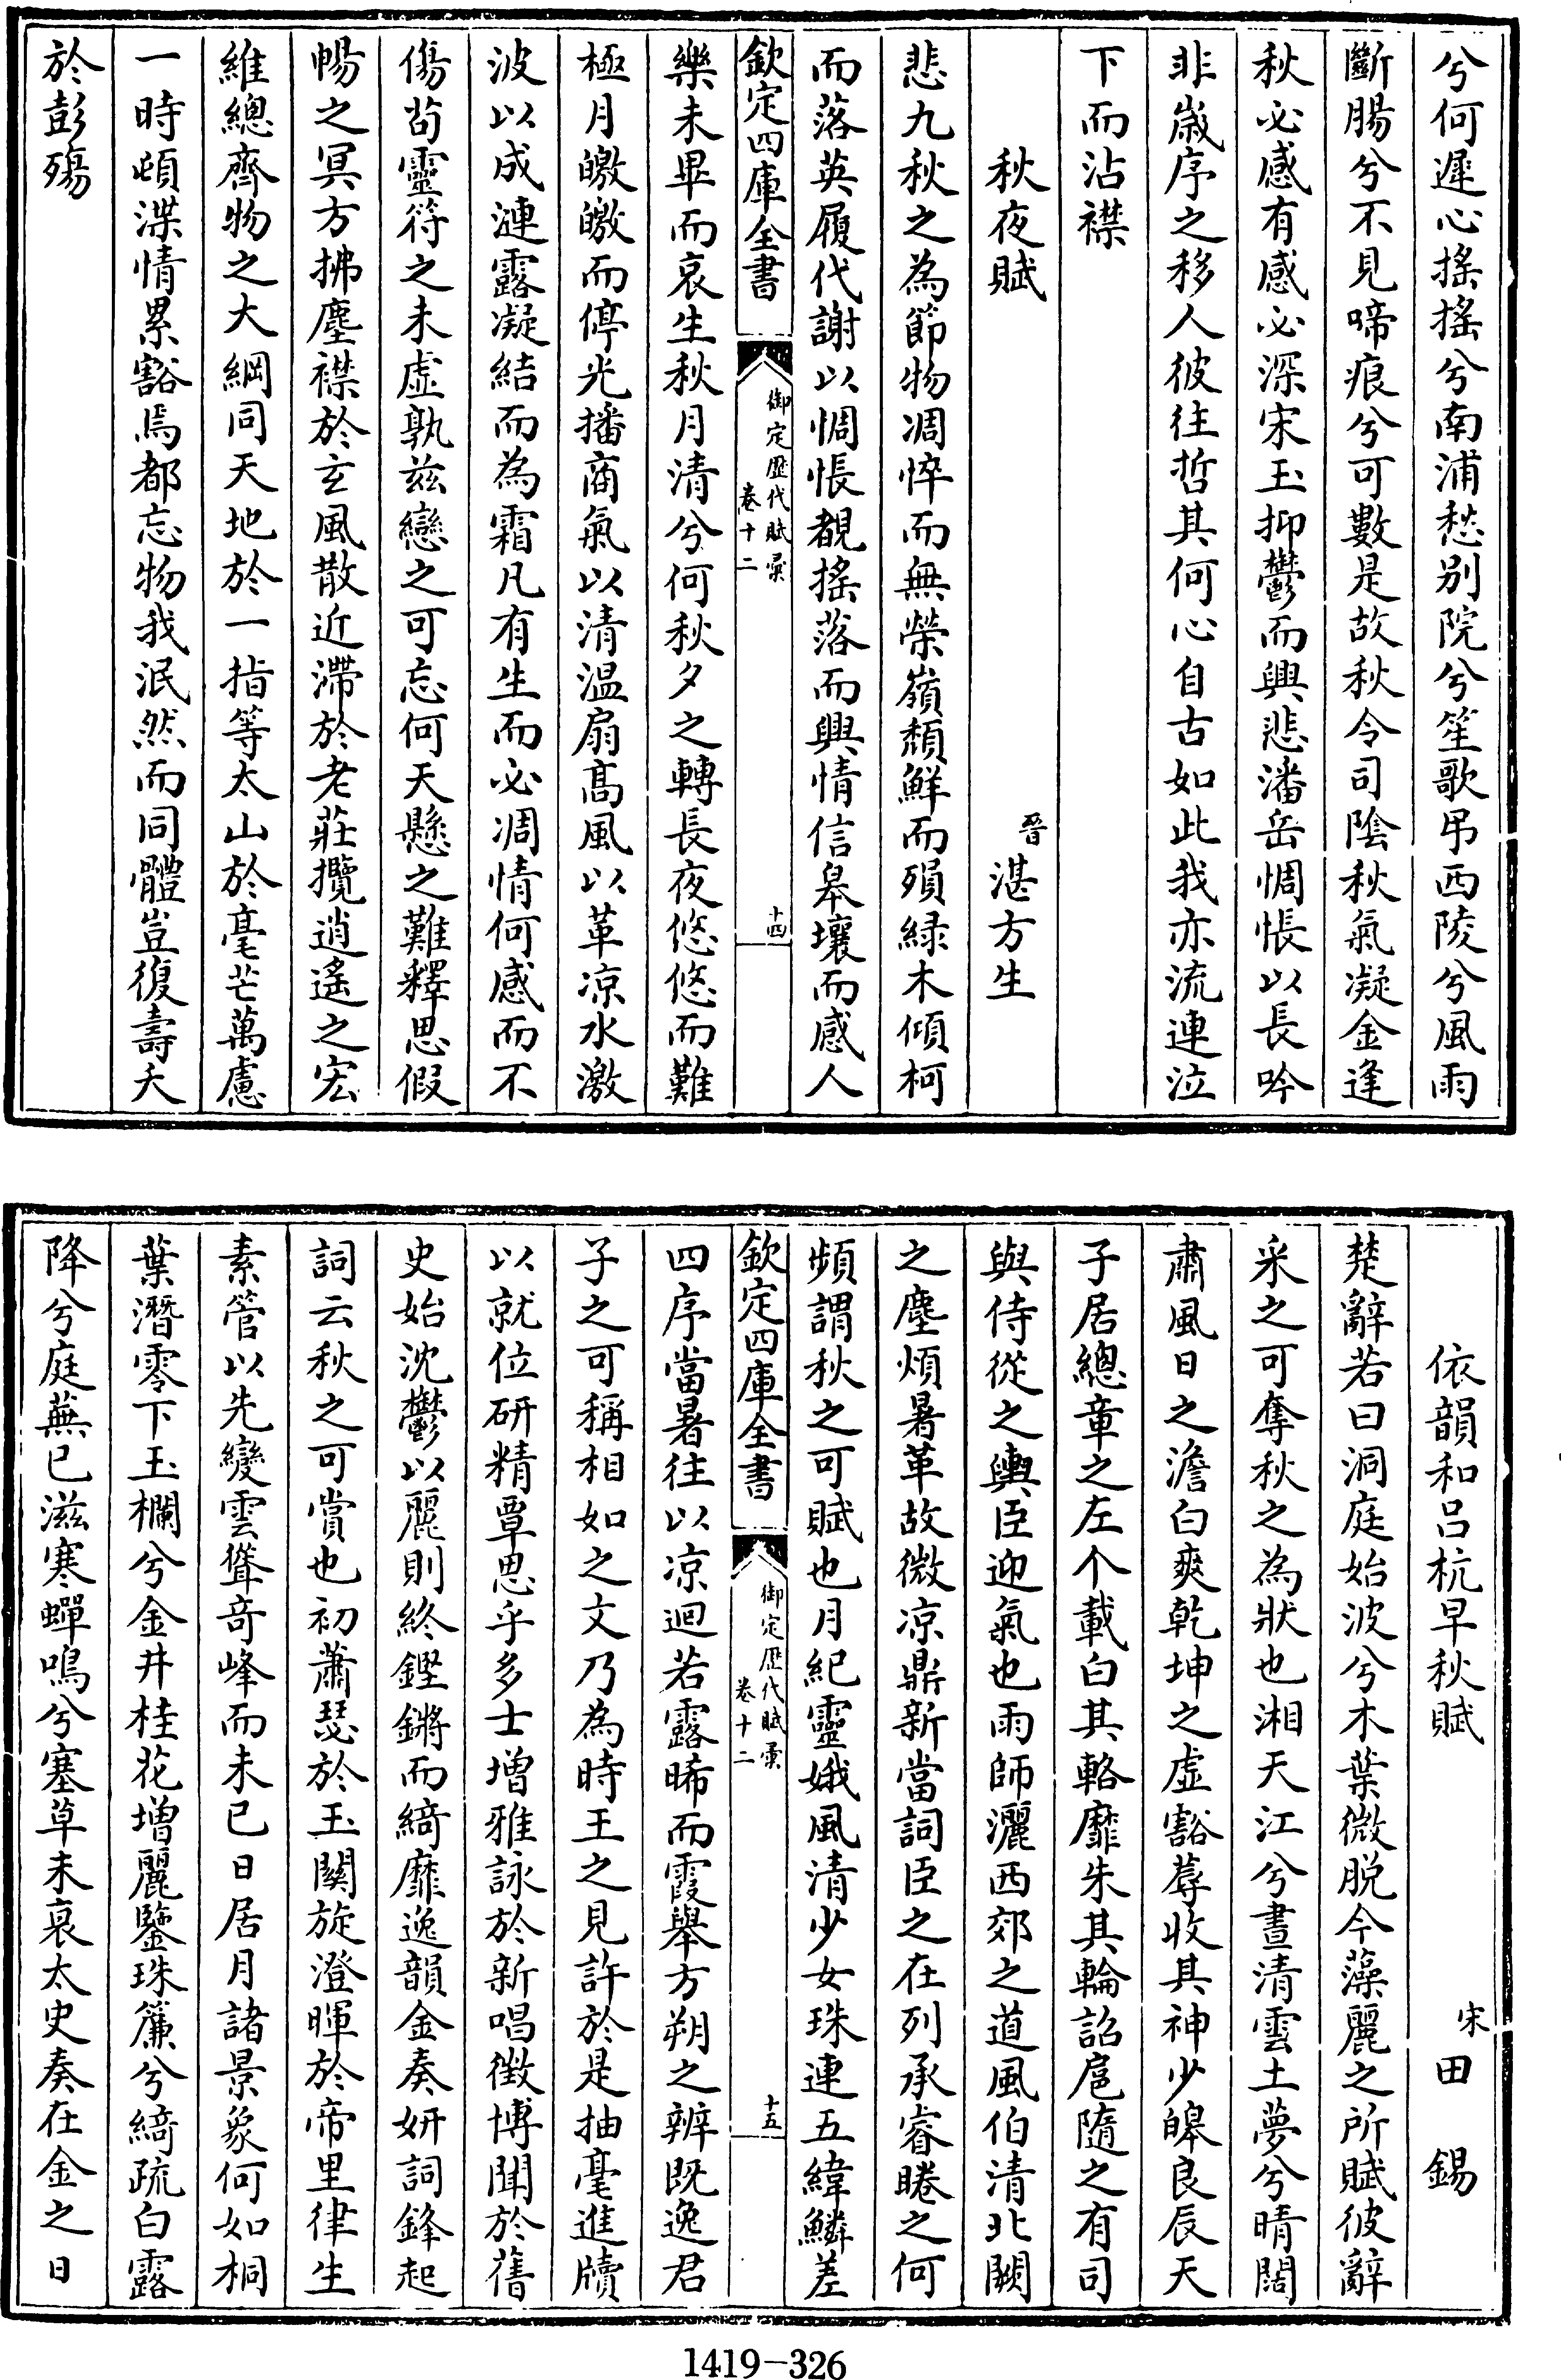 兮何遲心搖搖兮南浦愁别院兮笙歌弔西陵兮風雨
斷腸兮不見啼痕兮可數是故秋令司陰秋氣凝金逢
秋必感有感必深宋玉抑鬱而興悲潘岳惆悵以長吟
非嵗序之移人彼往哲其何心自古如此我亦流連泣
下而沾襟
秋夜賦 晉湛方生
悲九秋之為節物凋悴而無榮嶺頽鮮而殞緑木傾柯
而落英履代謝以惆悵覩搖落而興情信皋壤而感人
欽定四庫全書 御定歴代賦彚 卷十二 十四
樂未畢而哀生秋月清兮何秋夕之轉長夜悠悠而難
極月皦皦而停光播商氣以清温扇髙風以革凉水激
波以成漣露凝結而為霜凡有生而必凋情何感而不
傷茍靈符之未虚孰兹戀之可忘何天懸之難釋思假
暢之冥方拂塵襟於玄風散近滯於老莊攬逍遙之宏
維總齊物之大綱同天地於一指等太山於毫芒萬慮
一時頓渫情累豁焉都忘物我泯然而同體豈復壽夭
於彭殤
依韻和吕杭早秋賦 宋田 錫
楚辭若曰洞庭始波兮木葉微脱今藻麗之所賦彼辭
采之可奪秋之為狀也湘天江兮晝清雲土夢兮晴闊
肅風日之澹白爽乾坤之虚豁蓐收其神少皥良辰天
子居總章之左个載白其輅靡朱其輪詔扈隨之有司
與侍從之輿臣迎氣也雨師灑西郊之道風伯清北闕
之塵煩暑革故微凉鼎新當詞臣之在列承睿睠之何
頻謂秋之可賦也月紀靈娥風清少女珠連五緯鱗差
欽定四庫全書 御定歴代賦彚 卷十二 十五
四序當暑往以凉迴若露晞而霞舉方朔之辨既逸君
子之可稱相如之文乃為時王之見許於是抽毫進牘
以就位研精覃思乎多士增雅詠於新唱徴博聞於舊
史始沈鬱以麗則終鏗鏘而綺靡逸韻金奏妍詞鋒起
詞云秋之可賞也初蕭瑟於玉關旋澄暉於帝里律生
素管以先變雲聳奇峰而未已日居月諸景象何如桐
葉潛零下玉欄兮金井桂花增麗鑒珠簾兮綺疏白露
降兮庭蕪已滋寒蟬鳴兮塞草未衰太史奏在金之日
1419-326